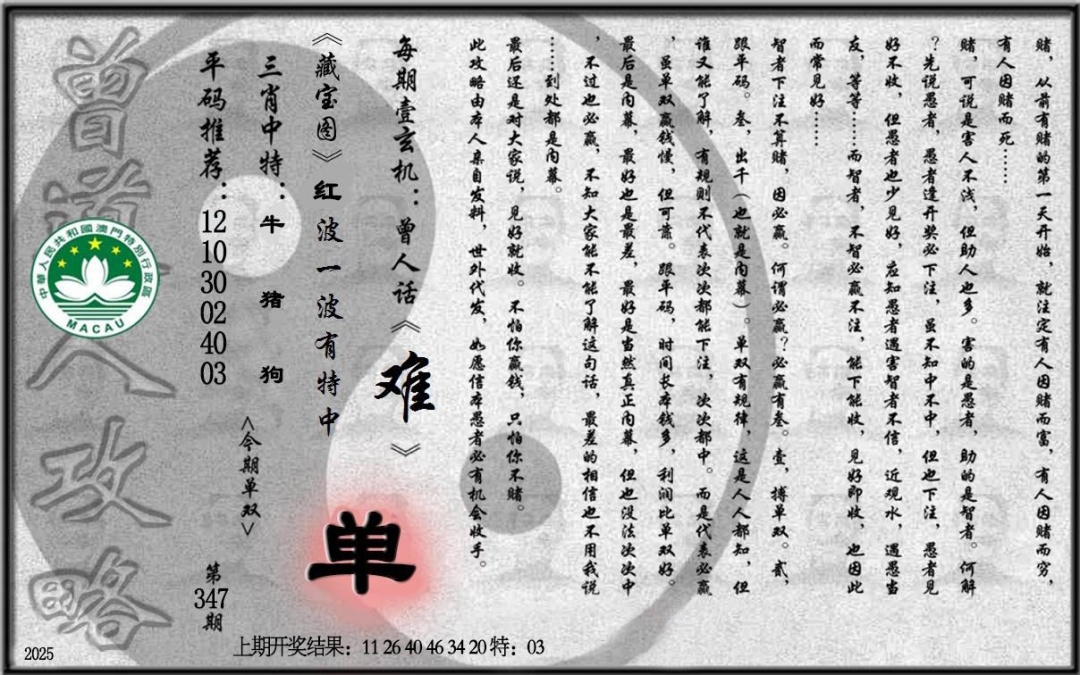 赌，从前有赌的第一天开始，就注定有人因赌而富，有人因赌而穷，
有人因赌而死……
赌，可说是害人不浅，但助人也多。害的是愚者，助的是智者。何解
？先说愚者，愚者逢开奖必下注，虽不知中不中，但也下注，愚者见
好不收，但愚者也少见好，应知愚者遇害智者不信，近观水，遇愚当
友，等等……而智者，不智必赢不注，能下能收，见好即收，也因此
而常见好……
智者下注不算赌，因必赢。何谓必赢？必赢有叁。壹，搏单双。贰，
跟单码。叁，出千（也就是内幕）。单双有规律，这是人人都知，但
谁又能了解，有规则不代表次次都能下注，次次都中。而是代表必赢
，虽单双赢钱慢，但可靠。跟单码，时间长本钱多，利润比单双好。
最后是内幕，最好也是最差，最好是当然真正内幕，但也没法次次中
，不过也必赢，不知大家能不能了解这句话，最差的相信也不用我说
……到处都是内幕。
最后还是对大家说，见好就收。不怕你赢钱，只怕你不赌。
此攻略由本人亲自发料，世外代发，如愿信本愚者必有机会收手。
每期壹玄机：曾人话《难》
《藏宝图》红波一波有特中
单
三肖中特：牛猪狗
<今期单双>
平码推荐：12 10 30 02 40 03
第347期
曾道人攻略
中華人民共和國澳門特別行政區
MACAU
上期开奖结果：11 26 40 46 34 20 特：03
2025